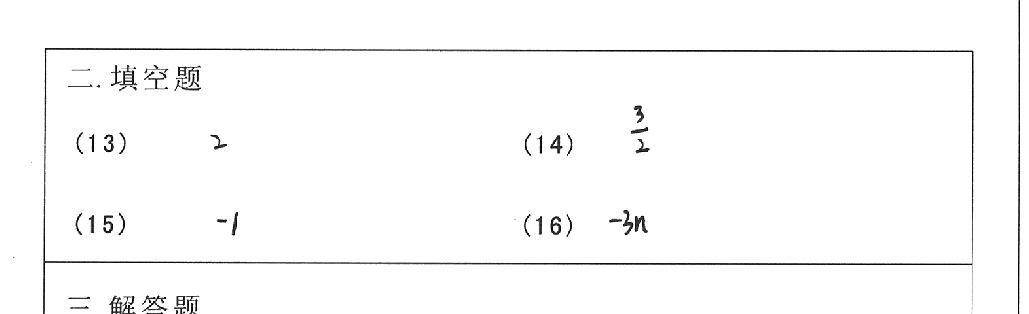 二.填空题
(13) 2 (14) 3/2
(15) -1 (16) -3n
三.解答题